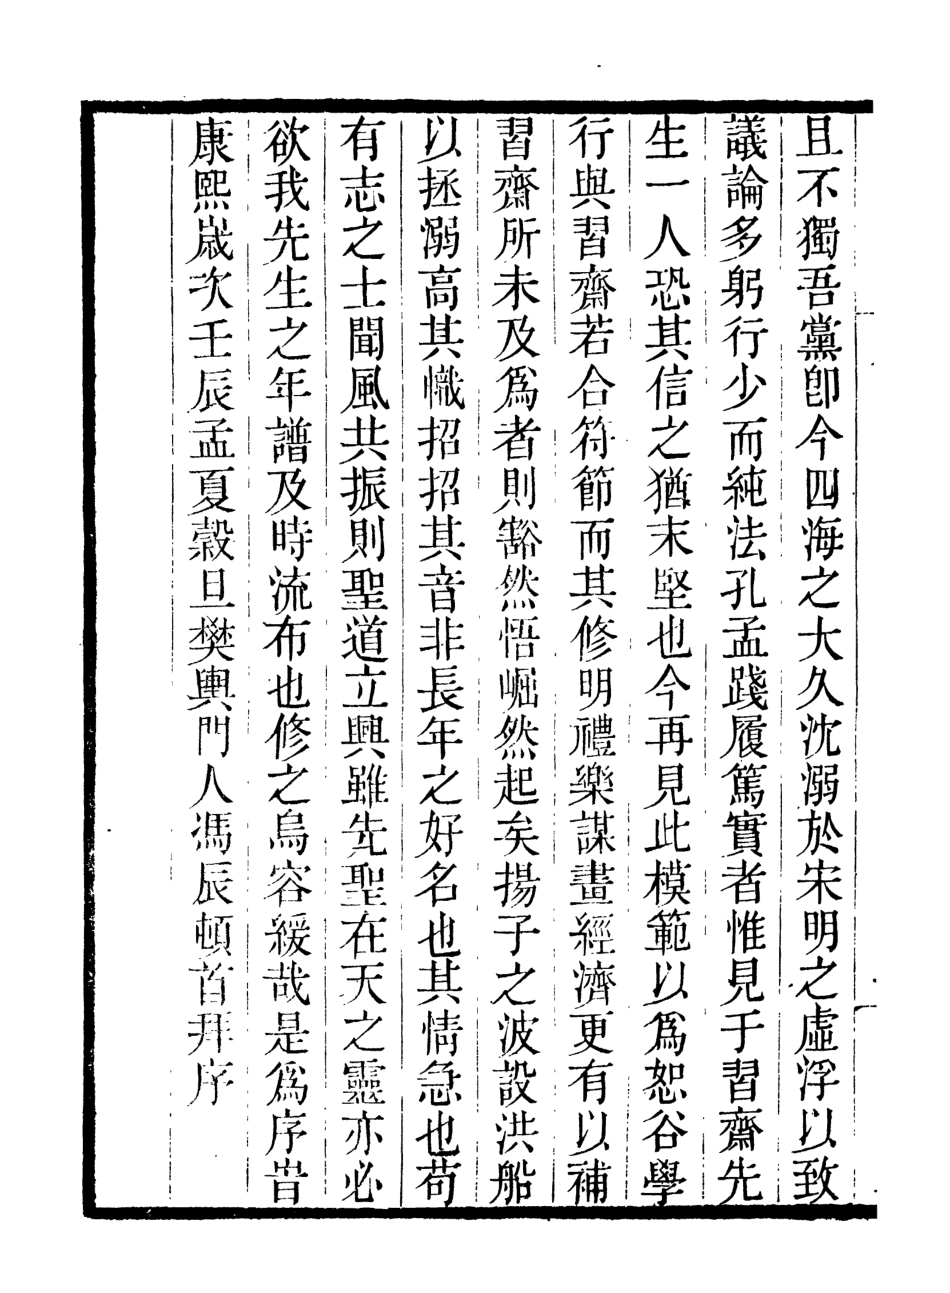 且不獨吾黨卽今四海之大久沈溺於宋明之虛浮以致
議論多躬行少而純法孔孟踐履篤實者惟見于習齋先
生一人恐其信之猶未堅也今再見此模範以爲恕谷學
行與習齋若合符節而其修明禮樂謀畫經濟更有以補
習齋所未及爲者則豁然悟崛然起矣揚子之波設洪船
以拯溺高其幟招招其音非長年之好名也其情急也苟
有志之士聞風共振則聖道立興雖先聖在天之靈亦必
欲我先生之年譜及時流布也修之烏容緩哉是爲序旹
康熙嵗次壬辰孟夏穀旦樊輿門人馮辰頓首拜序